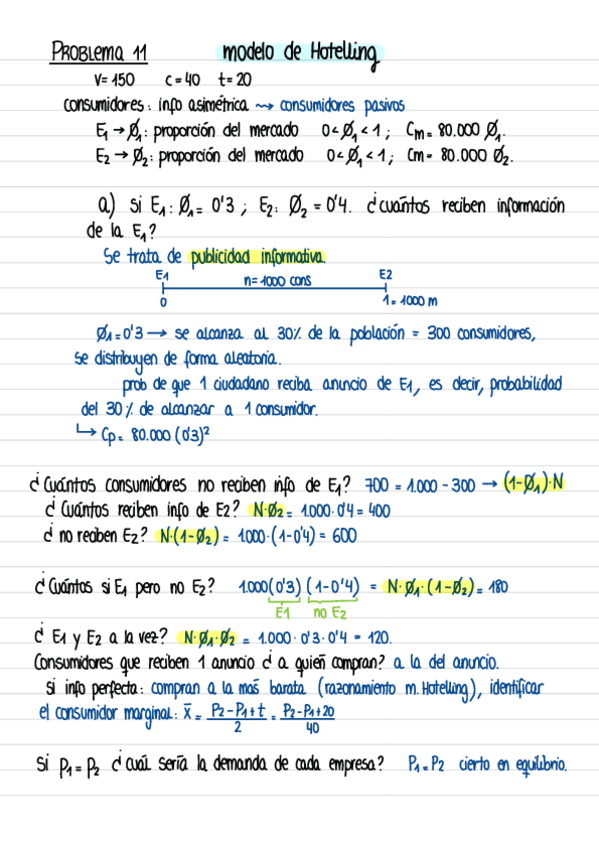 PROBLEMA 11 modelo de Hotelling
V= 150 c = 40 t= 20
consumidores: info asimétrica ⇝ consumidores pasivos
E₁ → Ø₁: proporción del mercado 0<Ø₁<1 ; Cm= 80.000 Ø₁.
E₂ → Ø₂: proporción del mercado 0<Ø₁<1; Cm= 80.000 Ø₂.
a) si E₁: Ø₁= 0'3 ; E₂: Ø₂ = 0'4. ¿cuántos reciben información
de la E₁?
Se trata de publicidad informativa.
E1 n= 1000 cons E2
0 1 = 1000 m
Ø₁=0'3 → se alcanza al 30% de la población = 300 consumidores,
se distribuyen de forma aleatoria.
prob de que 1 ciudadano reciba anuncio de E₁, es decir, probabilidad
del 30% de alcanzar a 1 consumidor.
↳ Cp= 80.000 (0'3)²
¿Cuántos consumidores no reciben info de E₁? 700 = 1.000 - 300 → (1-Ø₁)·N
¿Cuántos reciben info de E2? N·Ø₂ = 1.000·0'4 = 400
¿no reciben E2? N·(1-Ø₂) = 1.000·(1-0'4) = 600
¿Cuántos si E₁ pero no E₂? 1.000(0'3)(1-0'4) = N·Ø₁·(1-Ø₂) = 180
E1 no E2
¿E1 y E2 a la vez? N·Ø₁·Ø₂ = 1.000·0'3·0'4 = 120.
Consumidores que reciben 1 anuncio ¿a quién compran? a la del anuncio.
si info perfecta: compran a la más barata (razonamiento m. Hotelling), identificar
el consumidor marginal: x̄ = P₂-P₁+t / 2 = P₂-P₁+20 / 40
Si P₁=P₂ ¿cuál sería la demanda de cada empresa? P₁=P₂ cierto en equilibrio.